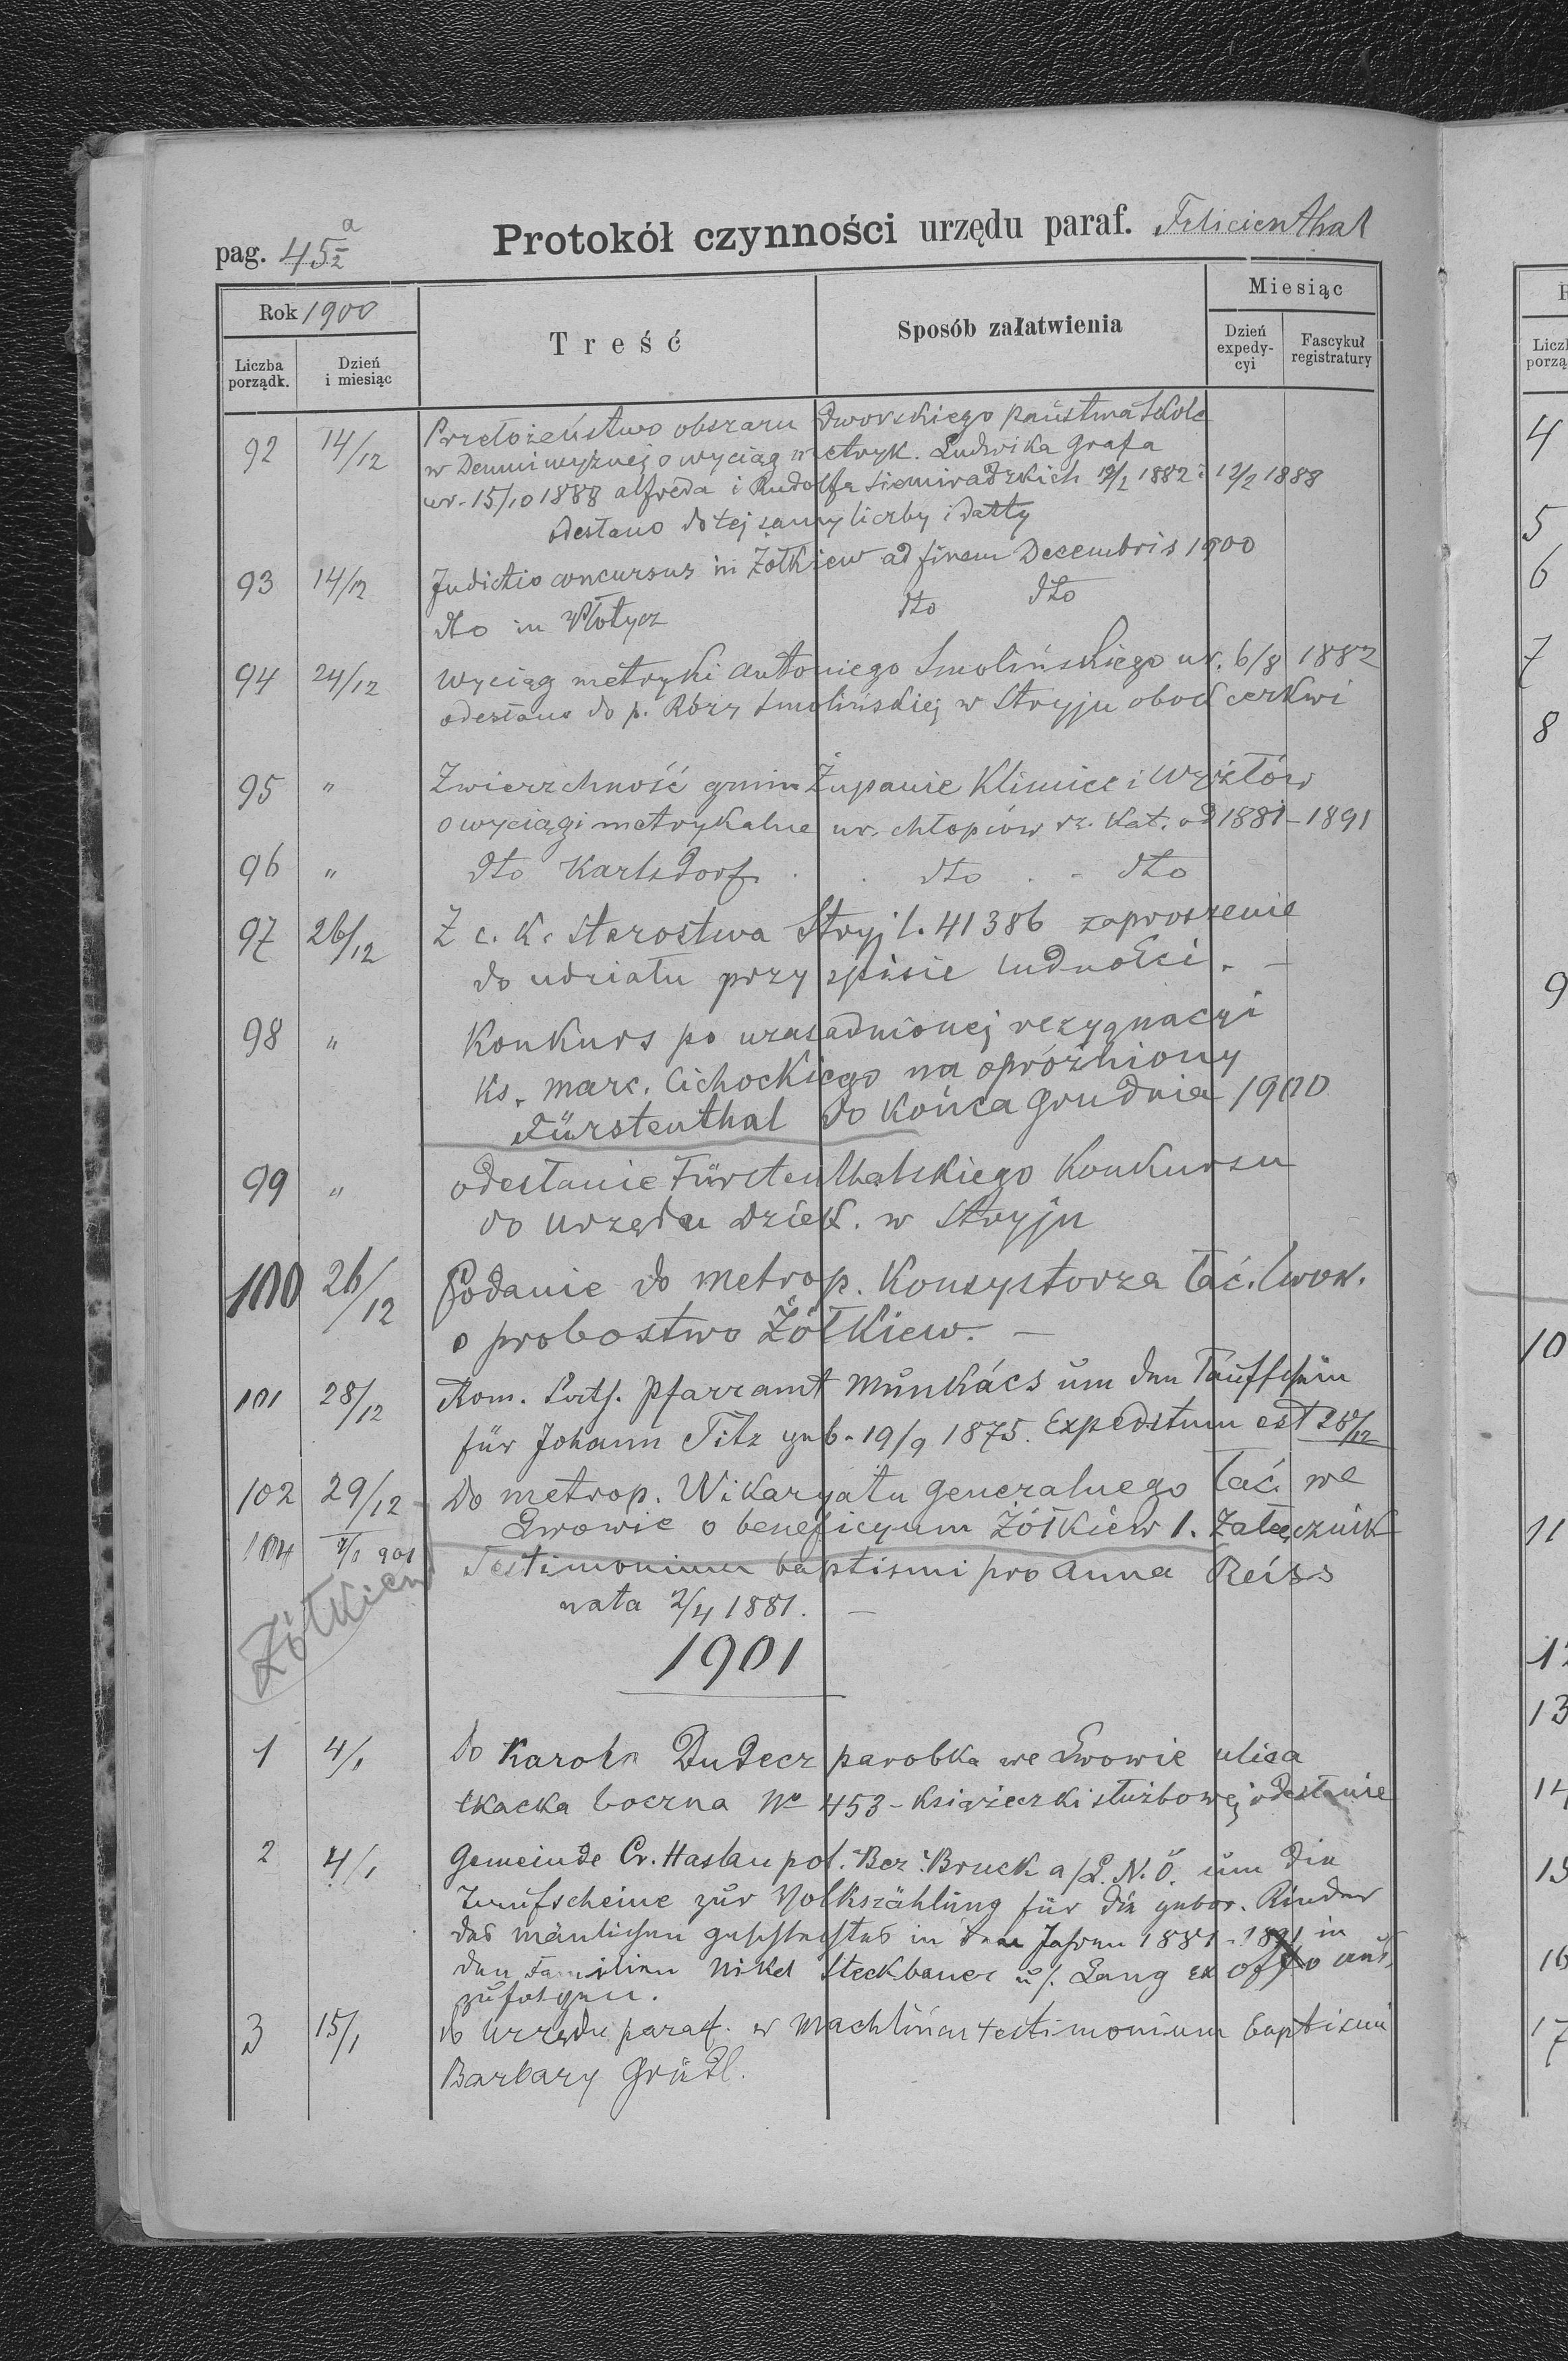 pag. 45 a/2
Protokół czynności urzędu paraf. Felicienthal
Rok 1900
Treść
Sposób załatwienia
Miesiąc
Liczba porządk.
Dzień i miesiąc
Dzień expedycyi
Fascykuł registratury
92 14/12 Przełożeństwo obszaru Dworskiego państwa Skole
w Demni wyżnej o wyciąg metryk. Ludwika Grafa
ur. 15/10 1888 Alfreda i Rudolfa Siemiradzkich 1882 i 12/2 1888
odesłano do tej samy liczby i datty
93 14/12 Indictio concursus in Żółkiew ad finem Decembris 1900
dto in dto dto
94 24/12 Wyciąg metryki Antoniego Smolińskiego ur. 6/8 1882
odesłano do p. Róży Smolińskiej w Stryju obok cerkwi
95 " Zwierzchność gmin Żupanie Klimiec i Wyżłów
o wyciągi metrykalne ur. chłopców rz. kat. od 1881-1891
96 " dto Karlsdorf dto dto
97 26/12 Z c. k. starostwa Stryj l. 41386 zaproszenie
do udziału przy spisie ludności. -
98 " Konkurs po uzasadnionej rezygnacyi
ks. Marc. Cichockiego na opróżniony
Fürstenthal do końca Grudnia 1900
99 " odesłanie Fürstenthalskiego Konkursu
do urzędu dziek. w Stryju
100 26/12 Podanie do metrop. Konsystorza łać. lwow.
o probostwo Żółkiew. -
101 28/12 Rom. kath. Pfarramt Munkács um den Taufschein
für Johann Titz geb. 19/9 1875. Expeditum est 28/12
102 29/12 do metrop. Wikaryatu generalnego łać. we
Lwowie o beneficyum Żółkiew 1. Załącznik
104 901 Testimonium baptismi pro Anna Reiss
nata 2/4 1881. -
Żółkiew
1901
1 4/1 do Karola Dudecz parobka we Lwowie ulica
tkacka boczna No 453 - książeczki służbowej odesłanie
2 4/1 Gemeinde Cr. Haslau pol. Bez. Bruck a/L. N.Ö. um die
Taufscheine zur Volkszählung für die gebor. Kinder
des mänlichen geschlechtes in den Jahren 1881-1891 in
den Familien Nikel Steckbauer u/. Lang ex offo aus
zufolgen.
3 15/1 do urzędu paraf. w Machlińcu testimonium baptismi
Barbary Grüdl.
4
5
6
7
8
9
10
11
13
14
15
16
17